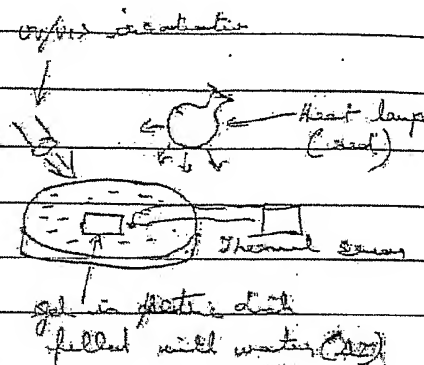 UV/VIS irradiation
Heat lamp
(red)
Thermal sensor
gel in plastic dish
filled with water